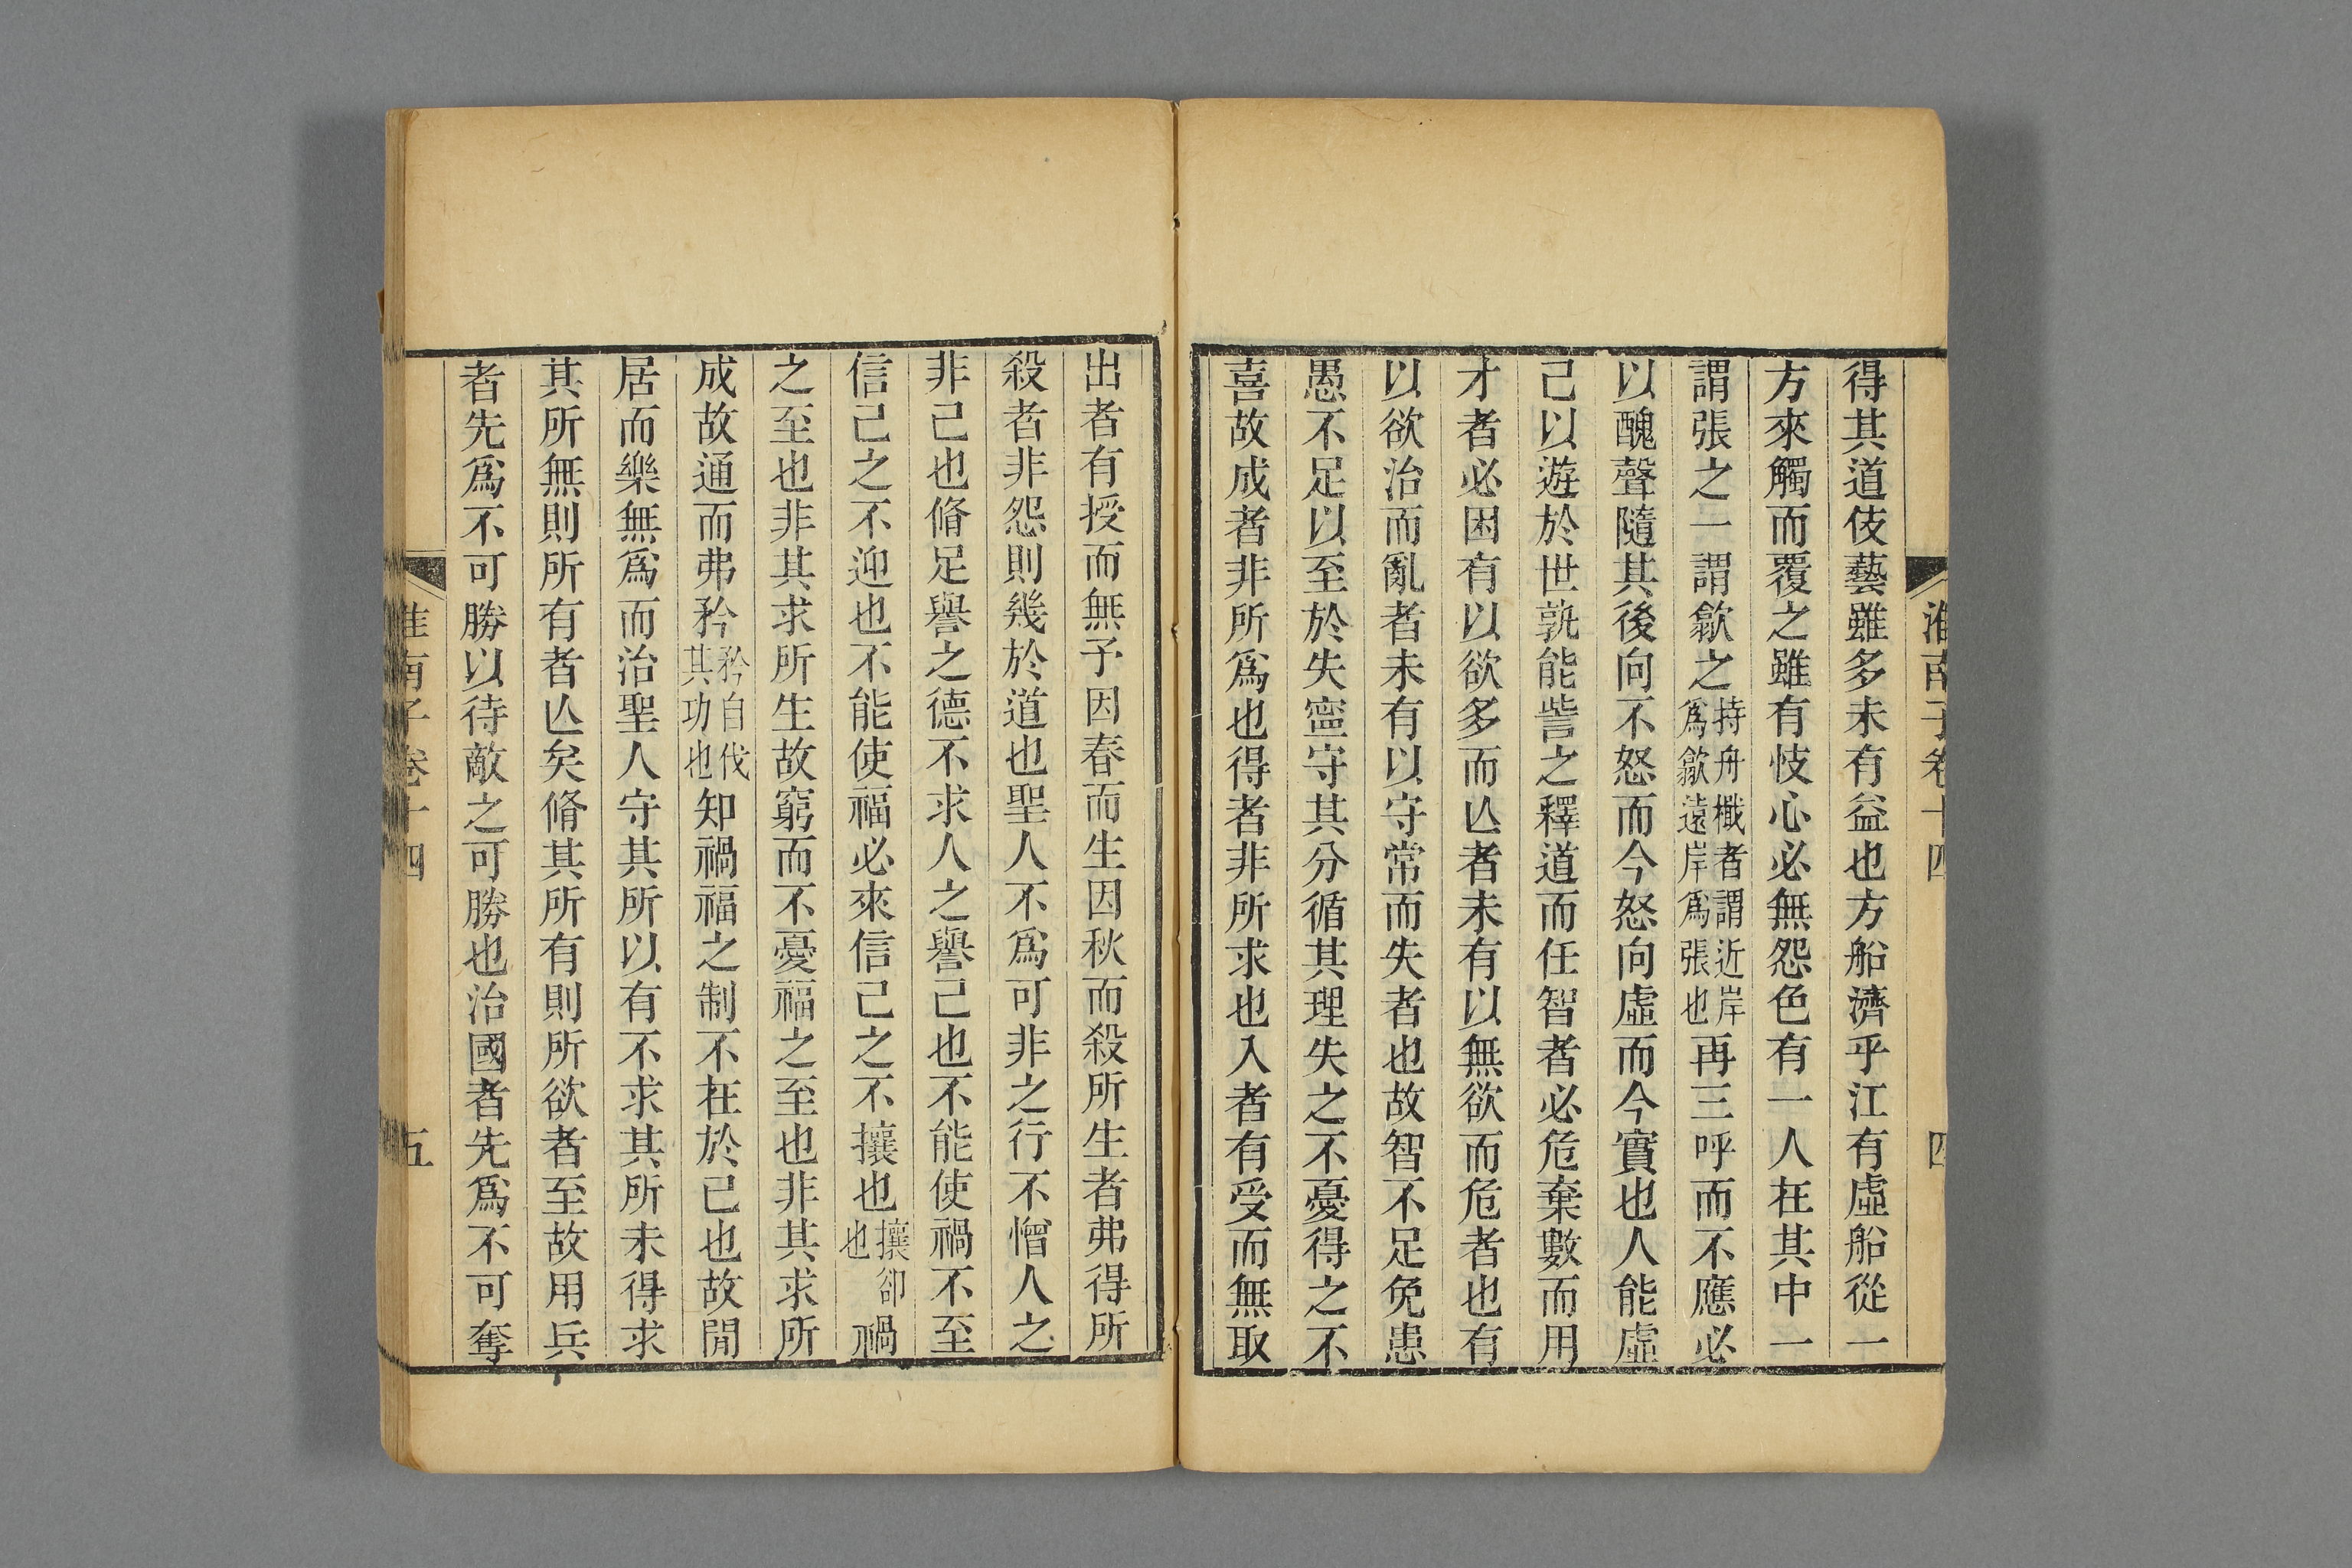 淮南子卷十四 四
得其道伎藝雖多未有益也方船濟乎江有虛船從一
方來觸而覆之雖有忮心必無怨色有一人在其中一
謂張之一謂歙之持舟檝者謂近岸爲歙遠岸爲張也再三呼而不應必
以醜聲隨其後向不怒而今怒向虛而今實也人能虛
己以遊於世孰能訾之釋道而任智者必危棄數而用
才者必困有以欲多而亾者未有以無欲而危者也有
以欲治而亂者未有以守常而失者也故智不足免患
愚不足以至於失寍守其分循其理失之不憂得之不
喜故成者非所爲也得者非所求也入者有受而無取
出者有授而無予因春而生因秋而殺所生者弗得所
殺者非怨則幾於道也聖人不爲可非之行不憎人之
非己也脩足譽之德不求人之譽己也不能使禍不至
信己之不迎也不能使福必來信己之不攘也攘卻也禍
之至也非其求所生故窮而不憂福之至也非其求所
成故通而弗矜矜自伐其功也知禍福之制不在於已也故閒
居而樂無爲而治聖人守其所以有不求其所未得求
其所無則所有者亾矣脩其所有則所欲者至故用兵
者先爲不可勝以待敵之可勝也治國者先爲不可奪
淮南子卷十四 五